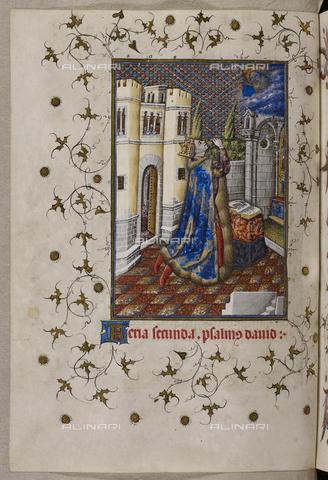 ALINARI
ALINARI
ALINARI
feria secunda . psalmus dauid :
ALINARI